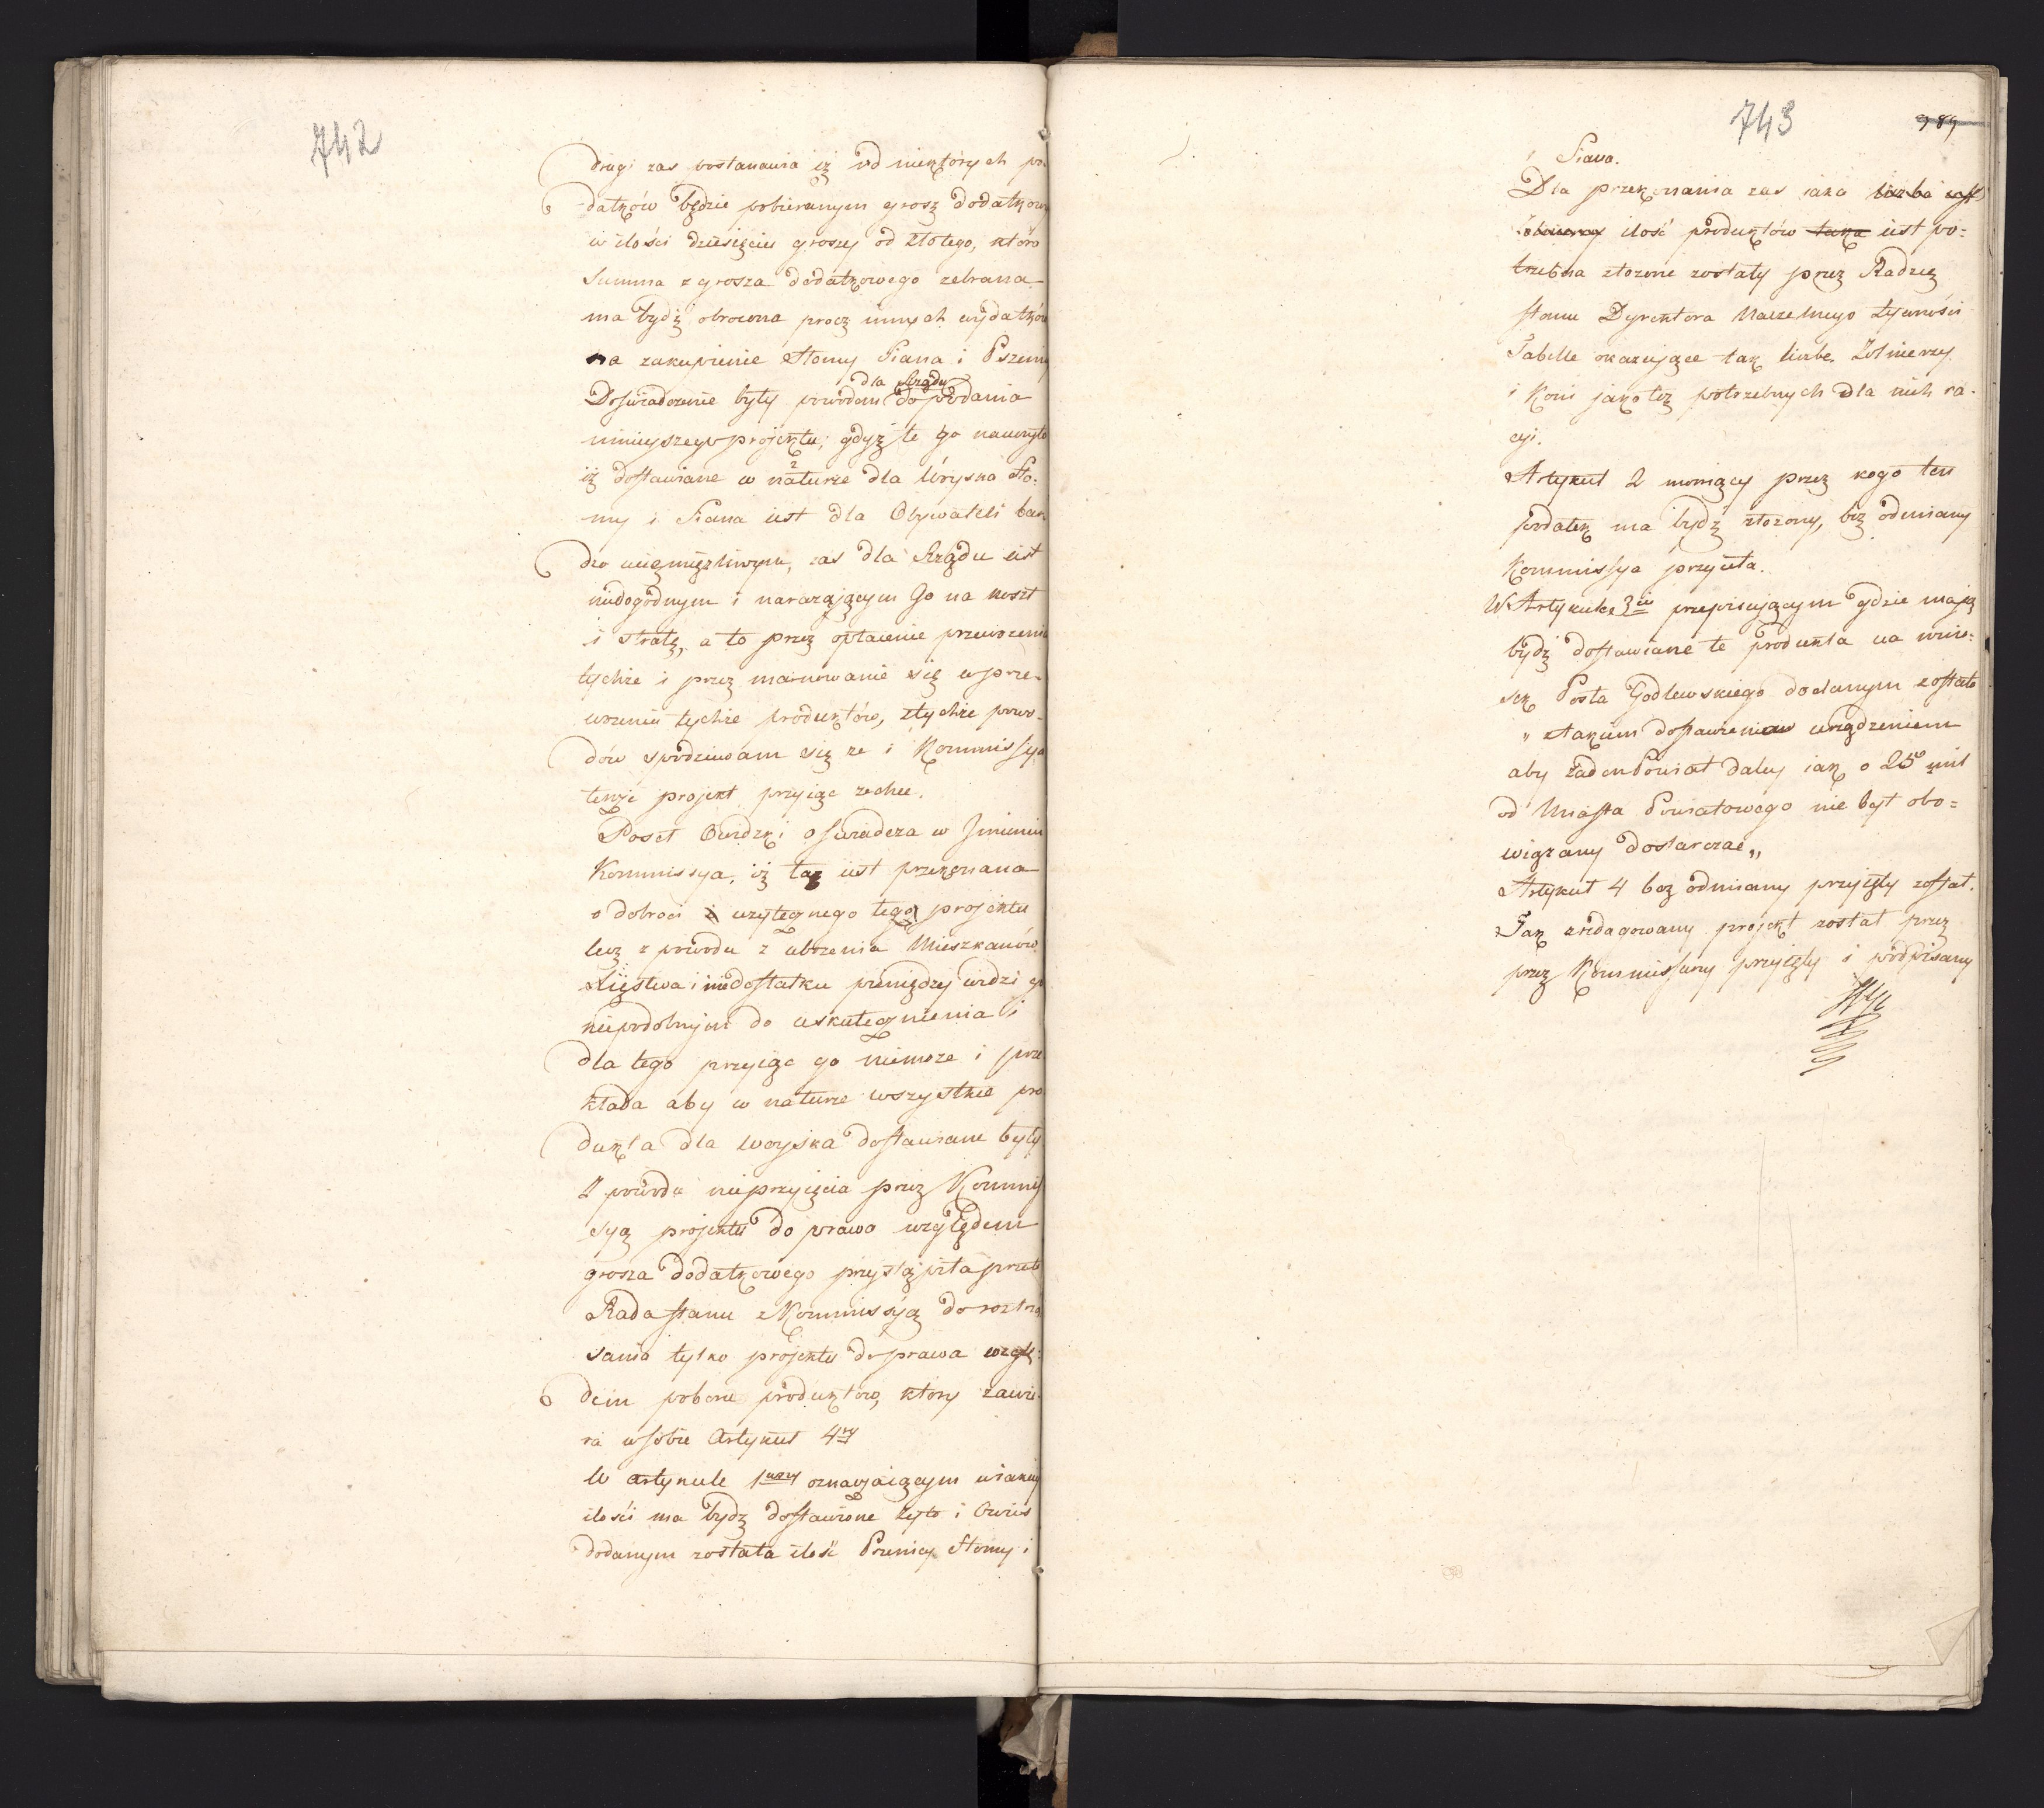 742
drugi zas postanawia iż od niektórych po
datków będzie pobieranym grosz dodatkow
w ilości dziesięciu groszy od złotego, któro
Summa z grosza dodatkowego zebrana
ma bydź obrocona procz innych wydatków
na zakupienie Słomy Siana i Pszeni
dla Rządu
Doświadczenie były powodem do podania
ninieyszego projektu; gdyż te go nauczyło
iż dostawianie w naturze dla Woyska Sło-
my i Siana iest dla Obywateli bar
dzo uciemiężliwym, zas dla Rządu iest
niedogodnym i narażaiącym Go na koszt
i stratę, a to przez opłacenie przewozenia
tychże i przez marnowanie się w prze-
wozeniu tychże produktów, z tychże powo-
dów spodziewam się ze i Kommissya
tenże projekt przyiąc zechce.
Poseł Owidzki oswiadcza w Jmieniu
Kommissya, iż tak iest przekonana
o dobroci i uzytecznego tego projektu
lecz z powodu z ubozenia Mieszkanów
Xięstwa i niedostatku pieniędzy widzi go
niepodobnym do uskutecznienia i
dla tego przyiąc go niemoze i prze
kłada aby w naturze wszystkie pro
dukta dla woyska dostawiane były
Z powodu nieprzyięcia przez Kommis
syą projektu do prawa względem
grosza dodatkowego przystąpiła przeto
Rada stanu z Kommissyą do roztrzą
sania tylko projektu do prawa wzglę:
dem poboru produktów, który zawie-
ra w sobie Artykuł 4ry
W artykule 1wszy oznaczaiącym w iakiey
ilości ma bydz dostawione Zyto i Owies
dodanym została ilość Pszenicy Słomy i
743
989
Siana.
Dla przekonania zas iaka liczba iest
ilość produktów taka iest po=
trzebna złozone zostały przez Radzcę
stanu Dyrektora Naczelnego Zywności
Tabelle okazuiące tak liczbe Zolnierzy
i Koni jako tez potrzebnych dla nich ra-
cyi.
Artykuł 2 mowiący przez kogo ten
podatek ma bydz złozony, bez odmiany
Kommissya przyięła.
W Artykule 3im przepisuiącym gdzie maią
bydz dostawiane te produkta na wnio=
sek Posła Godlewskiego dodanym zostało
„ z takiem dostawieniem urządzeniem
aby żaden Powiat daley iak o 25 mil
od Miasta Powiatowego nie był obo=
wiązany dostarczać„
Artykuł 4 bez odmiany przyięty został.
Tak zredagowany projekt został przez
przez Kommissarzy przyięty i podpisany